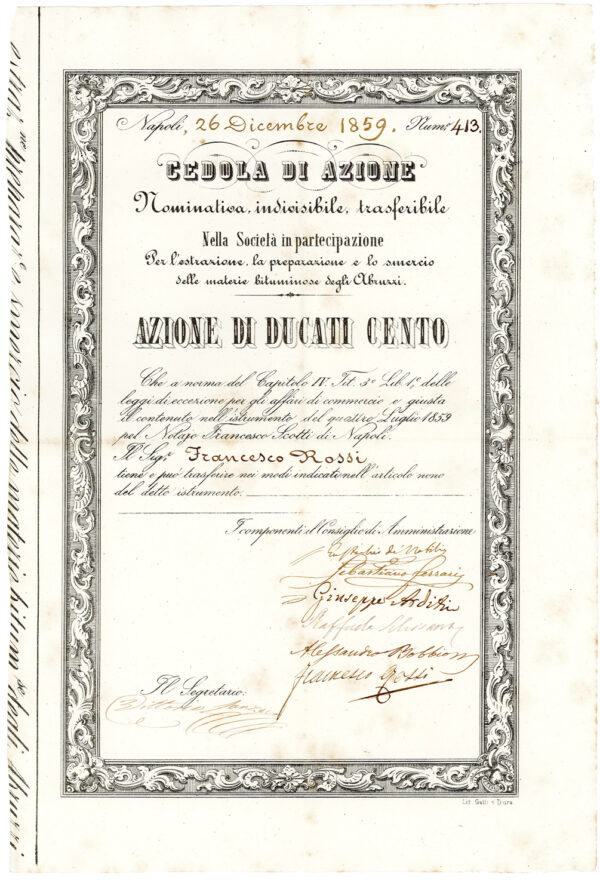 Napoli, 26 Dicembre 1859. Num.º 413.
CEDOLA DI AZIONE
Nominativa, indivisibile, trasferibile
Nella Società in partecipazione
Per l'estrazione, la preparazione e lo smercio
delle materie bituminose degli Abruzzi.
AZIONE DI DUCATI CENTO
Che a norma del Capitolo IV. Tit. 3º Lib. 1º delle
leggi di eccezione per gli affari di commercio e giusta
il contenuto nell'istrumento del quattro Luglio 1859
pel Notajo Francesco Scotti di Napoli.
Il Sigr. Francesco Rossi
tiene e può trasferire nei modi indicati nell'articolo nono
del detto istrumento.
I componenti il Consiglio di Amministrazione
Sebastiano
Giuseppe Arditi
Raffaele
Alessandro
Francesco Rossi
Il Segretario:
Lit. Gatti e Dura
preparaz.e e smercio delle materie bitum.se degli Abruzzi